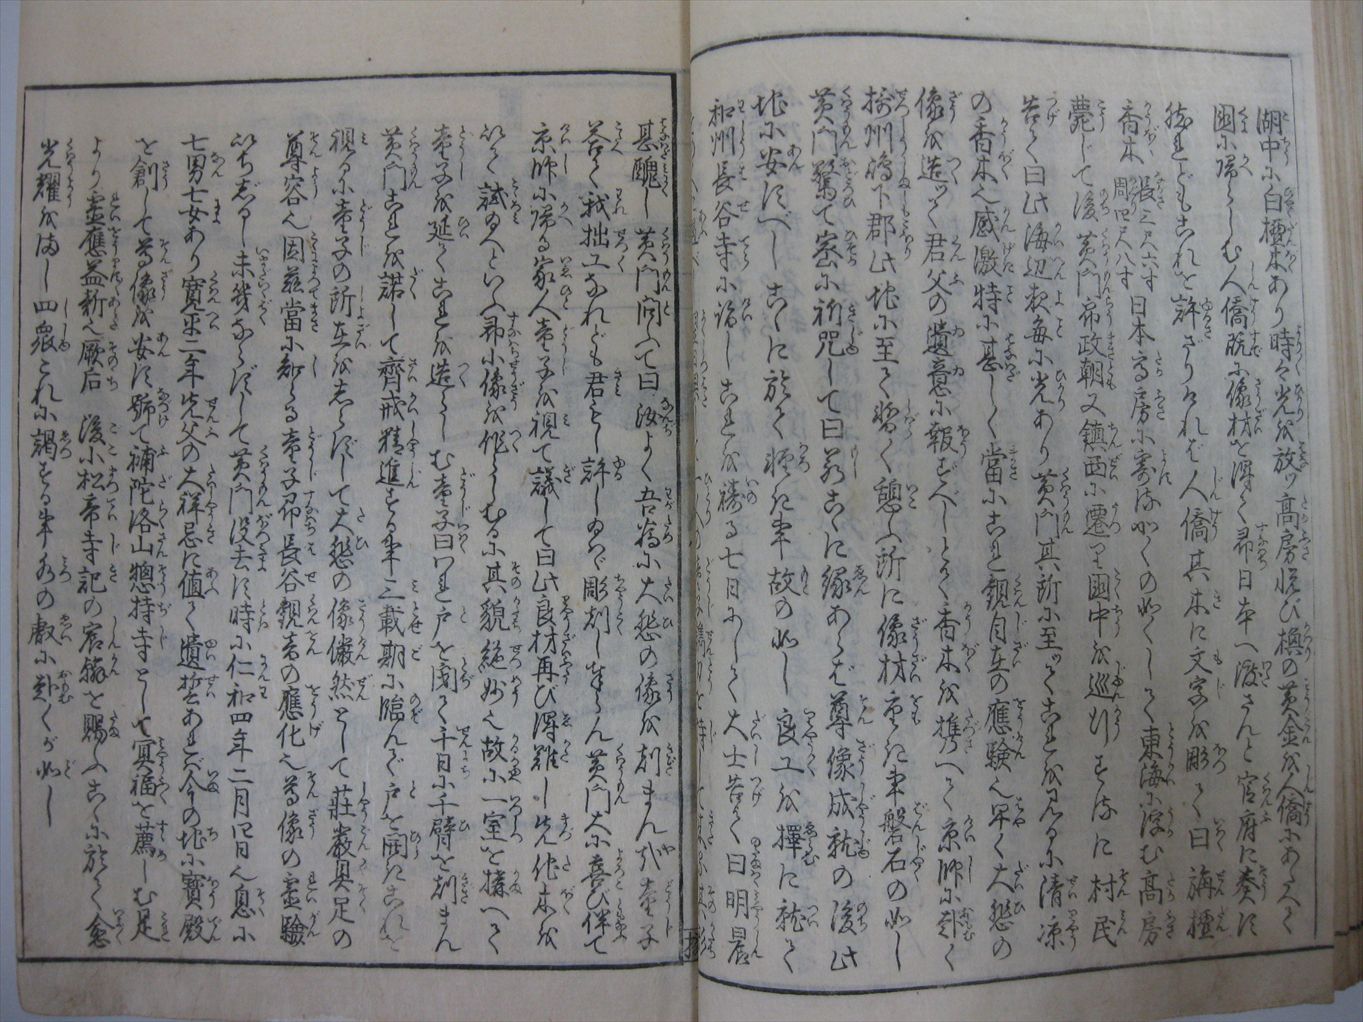 湖中に白檀木あり時々光を放ッ高房悦び櫃の黄金を人僑にあたへて
國に帰らしむ人僑既に像材を得て帚日本へ渡さんと官府に奏に
然れどもこれを許ざりければ人僑其木に文字を彫て曰 旃檀
香木 長二尺六寸 周囘尺八寸 日本高房に寄ると 東海に浮む高房
薨じて後黄門帚政朝又鎮西に遷り國中を巡行する時に村民
告て曰此海辺夜毎に光あり黄門其所に至ッてこれを見るに清凉
の香木也感激特に甚しく當にこれ觀自在の應験也早く大悲の
像を造ッて君父の遺意に報ずべしとて香木を携へて京師に赴く
摂州嶋下郡此地に至て暫く憩ふ所に像材重き事磐石の如し
黄門驚て密に祈咒して曰若こゝに緣あらば尊像成就の後此
地に安ずべしこゝに於て軽き事故の如し 良工を擇に就て
和州長谷寺に詣しこれを祷る七日にして大士告て曰明晨
甚醜し黄門問ふて曰 汝よく吾爲に大悲の像を刻まんや童子
答て我拙工なれども君もし許し給はゞ彫刻し奉らん黄門大に喜び伴て
京師に帰る家人童子を視て議して曰此良材再び得難し先他木を
以て試給へといふ帚小像を作らしむるに其貌絶妙也故に一室を搆へて
童子を延てこれを造らしむ童子曰われ戸を閉て千日に千臂を刻まん
黄門これを諾して齊戒精進する事三載期に臨んで戸を開きこれを
視るに童子の所在をしらずして大悲の像儼然として荘嚴具足の
尊容也因茲當に知る童子帚長谷觀音の應化也尊像の霊驗
いちじるし未幾ならずして黄門没去す時に仁和四年二月四日也息に
七男七女あり寛平二年先父の大祥忌に値て遺誓あれば今の地に寳殿
を創して尊像を安ず號て補陀洛山惣持寺として冥福を薦しむ是
より霊應益新也厥后 後小松帝寺記の宸翰を賜ふこゝに於て愈
光耀をまし四衆これに謁する事水の壑に赴くが如し